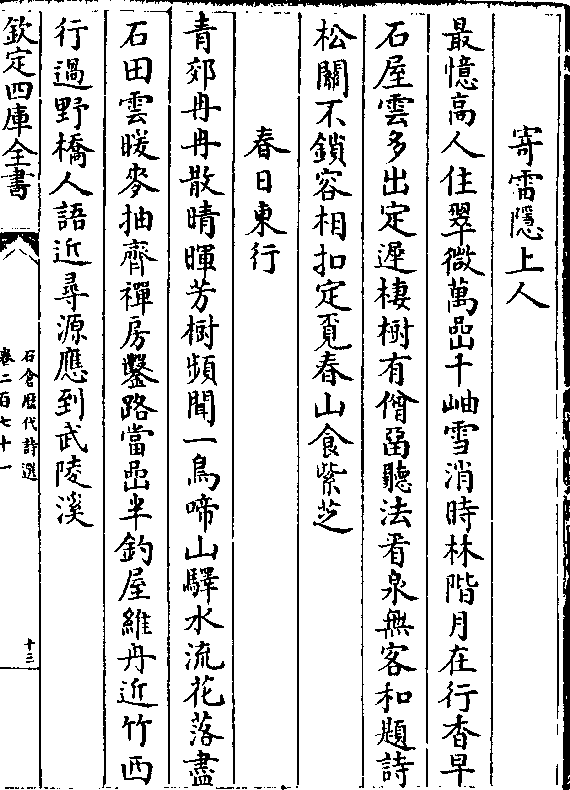 寄雷隱上人
最憶高人住翠微萬嵒千岫雪消時林階月在行杳早
石屋雲多出定遲棲樹有僧畱聽法看泉無客和題詩
松關不鎖容相扣定覓春山食紫芝
春日東行
青郊冉冉散晴暉芳樹頻聞一鳥啼山驛水流花落盡
石田雲暖麥抽齊禪房鑿路當嵒半釣屋維舟近竹西
行過野橋人語近尋源應到武陵溪
欽定四庫全書
石倉歷代詩選
卷二百七十一
十三